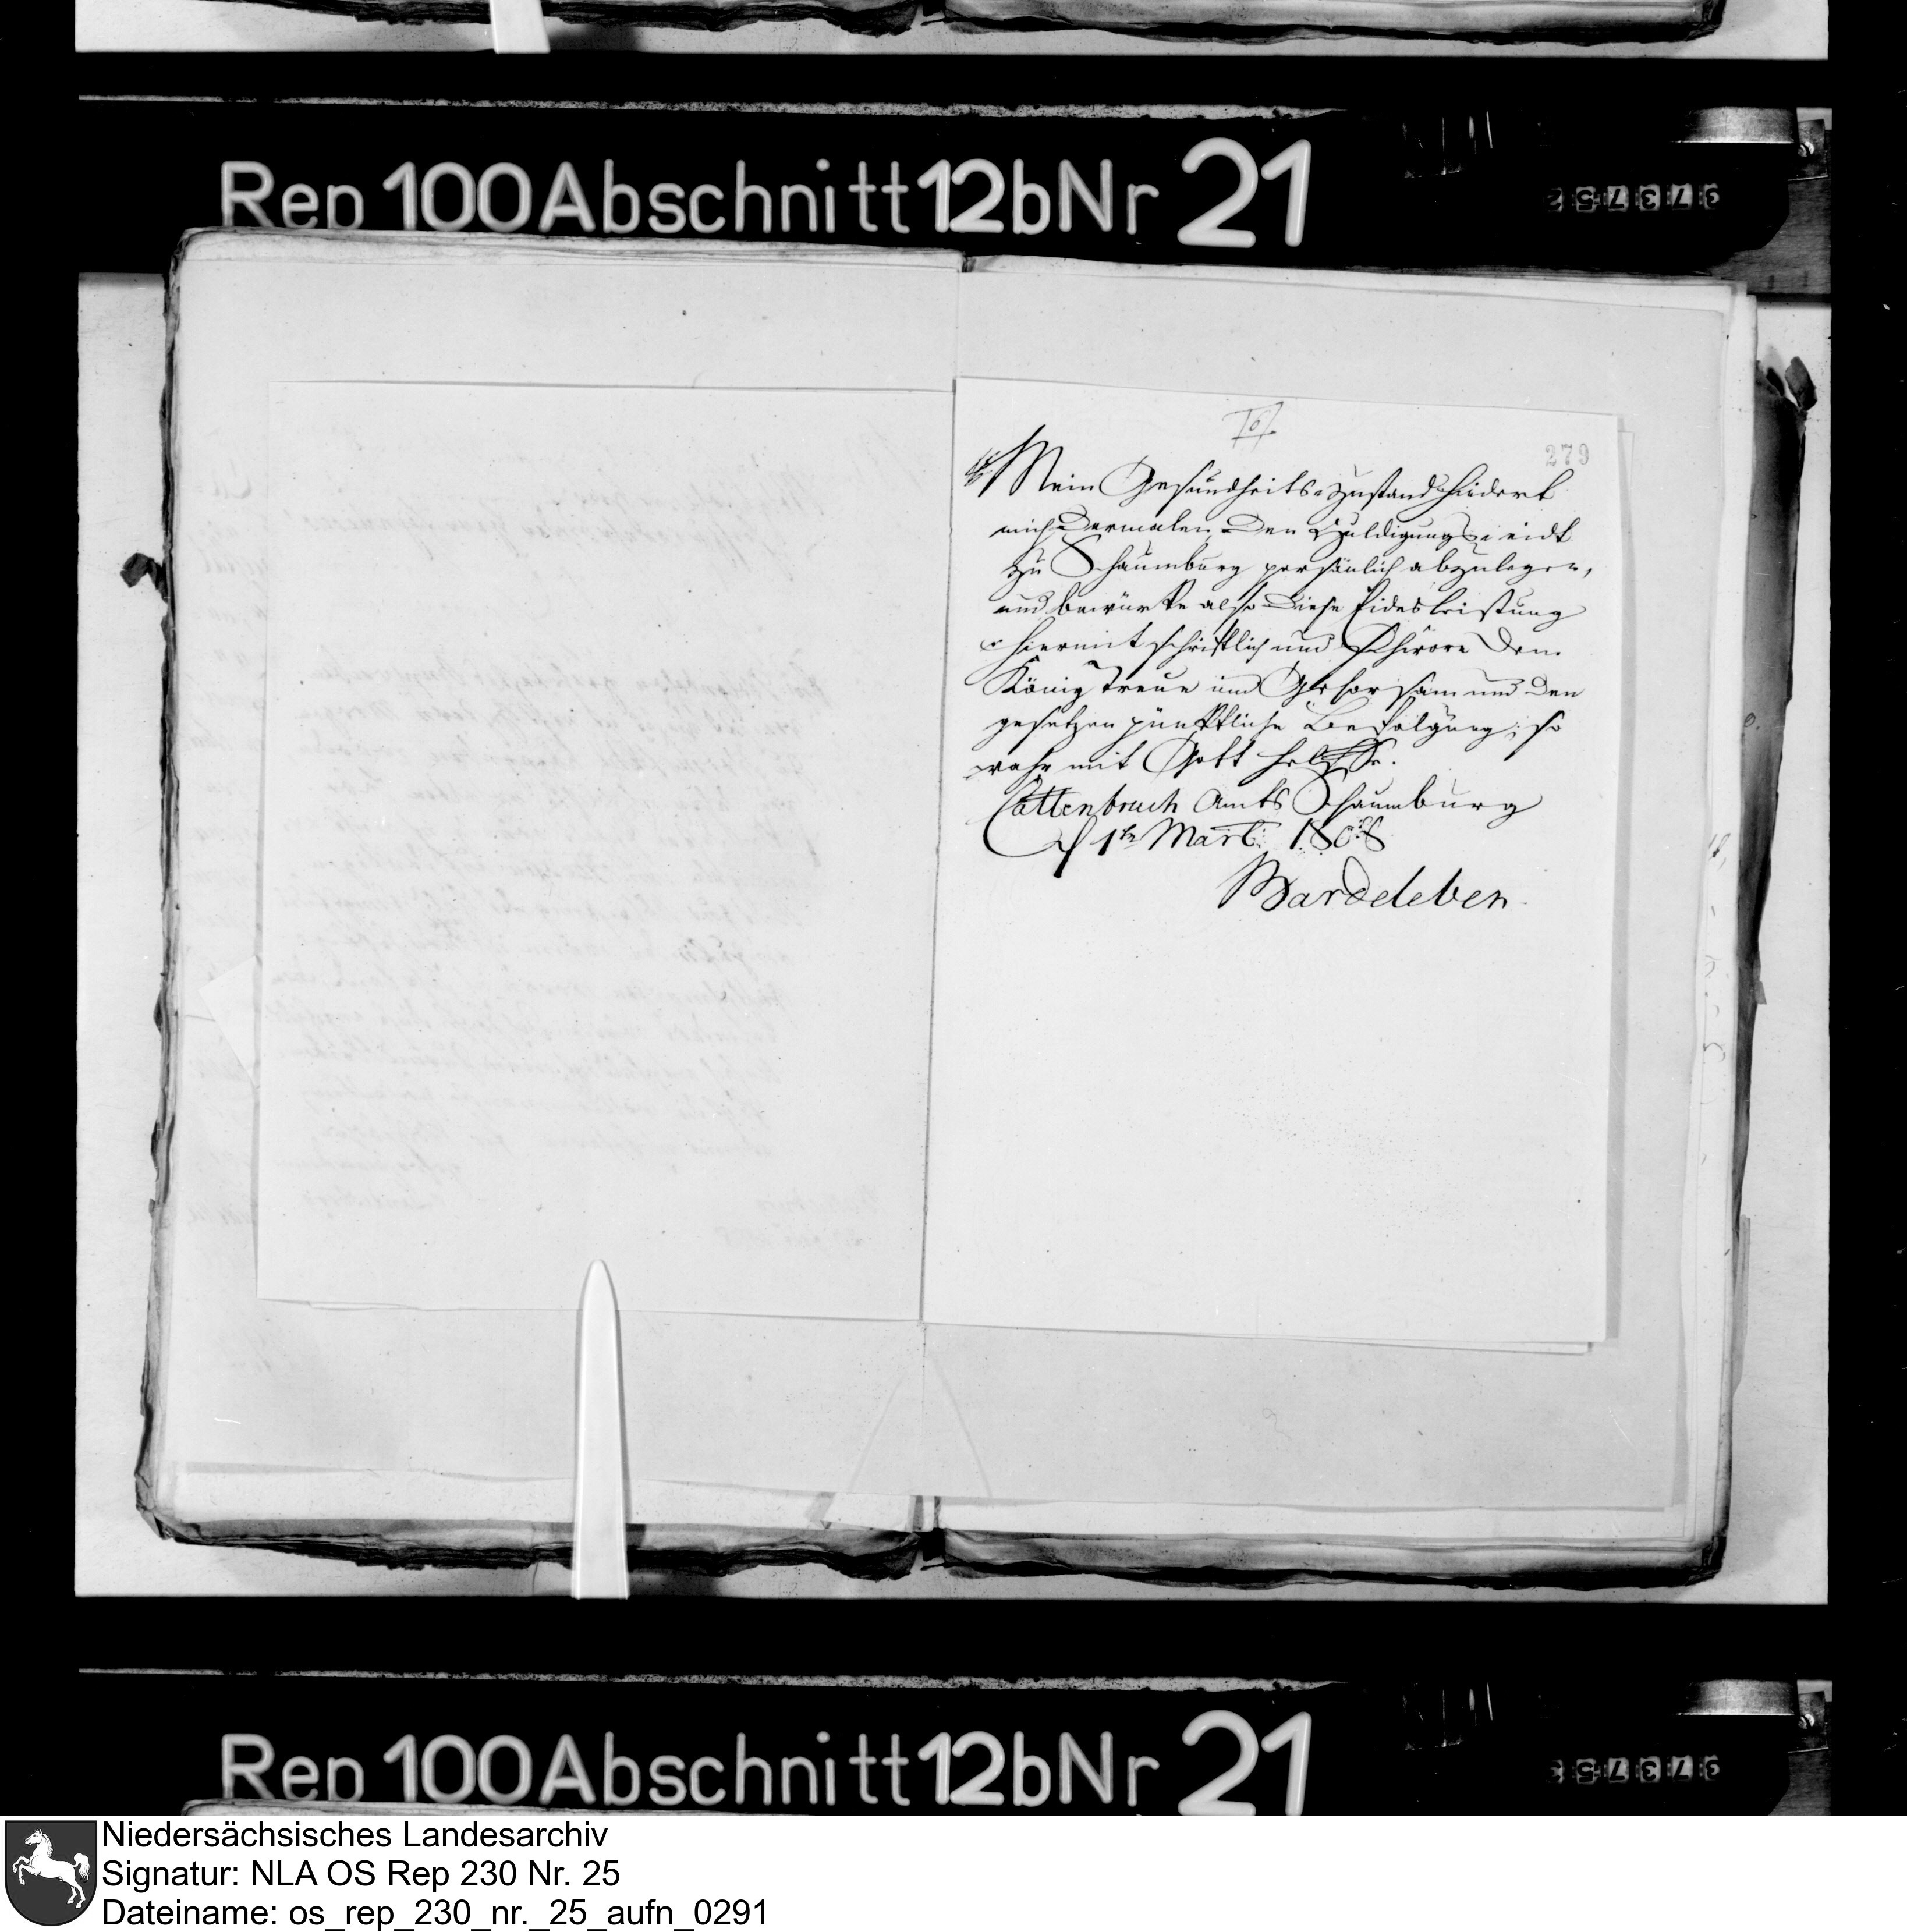 Rep 100 Abschnitt 12b Nr 21
279
Mein Gesundheits-Zustand hindert
mich dermalen, den Huldigungs-eidt
zu Schaumburg persönlich abzulegen,
und bewürke also diese Eides leistung
hiermit schriftlich und schwöre dem
König Treue und Gehorsam und den
gesetzen pünktliche Befolgung; so
wahr mir Gott helffe.
Cattenbruch Amts Schaumburg
d 1ten Mart: 1808
Bardeleben
Rep 100 Abschnitt 12b Nr 21
Niedersächsisches Landesarchiv
Signatur: NLA OS Rep 230 Nr. 25
Dateiname: os_rep_230_nr._25_aufn_0291